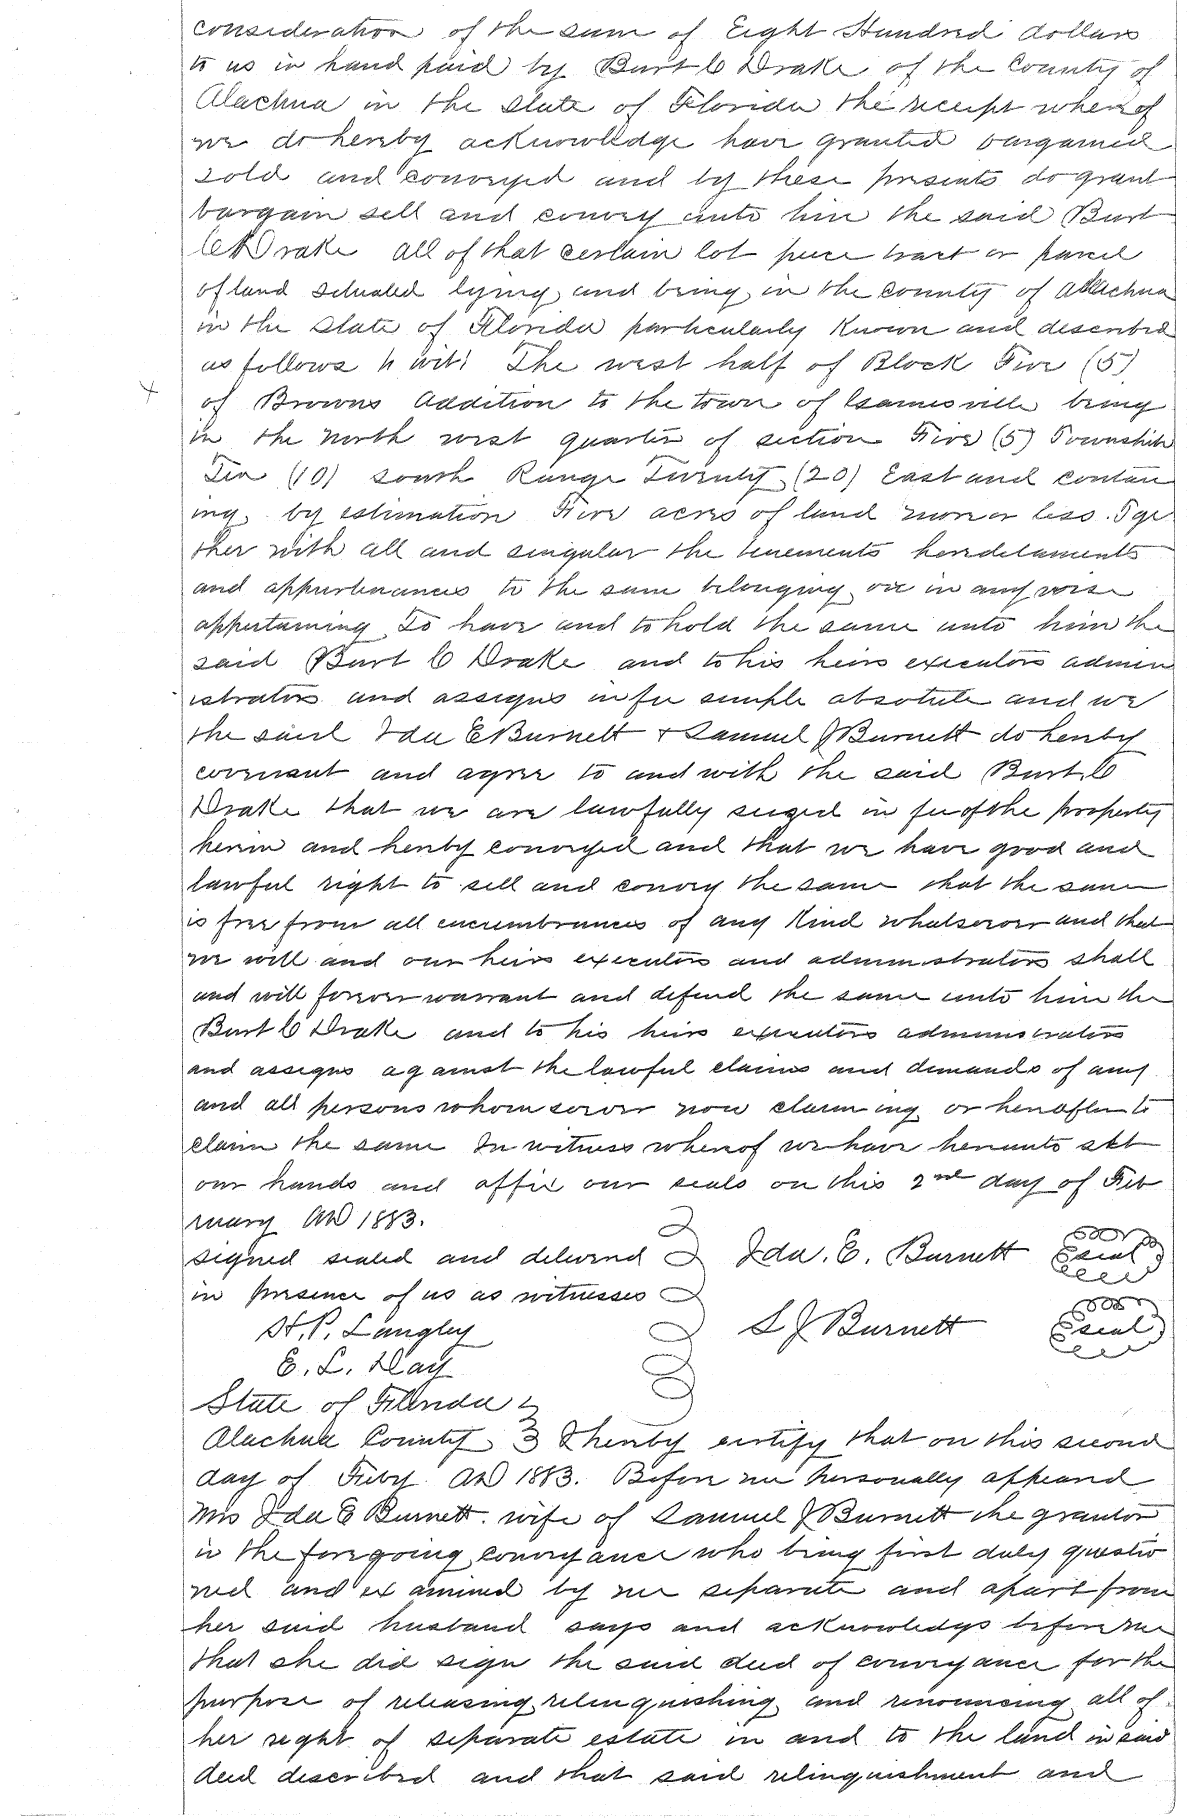 consideration of the sum of Eight Hundred dollars
to us in hand paid by Burt C Drake of the County of
Alachua in the State of Florida the receipt whereof
we do hereby acknowledge have granted bargained
sold and conveyed and by these presents do grant
bargain sell and convey unto him the said Burt
C Drake all of that certain lot piece tract or parcel
of land situated lying and being in the county of Alachua
in the State of Florida particularly known and described
as follows to wit: The west half of Block Five (5)
of Browns Addition to the town of Gainesville being
in the north west quarter of section Five (5) Township
Ten (10) south Range Twenty (20) East and contain
ing by estimation Five acres of land more or less. Toge
ther with all and singular the tenements heredetaments
and appurtenances to the same belonging or in any wise
appertaining To have and to hold the same unto him the
said Burt C Drake and to his heirs executors admin
istrators and assigns in fee simple absolute and we
the said Ida E Burnett & Samuel J Burnett do hereby
covenant and agree to and with the said Burt C
Drake that we are lawfully seized in fee of the property
herein and hereby conveyed and that we have good and
lawful right to sell and convey the same that the same
is free from all encumbrances of any kind whatsoever and that
we will and our heirs executors and administrators shall
and will forever warrant and defend the same unto him the
Burt C Drake and to his heirs executors administrators
and assigns against the lawful claims and demands of any
and all persons whomsoever now claiming or hereafter to
claim the same In witness whereof we have hereunto set
our hands and affix our seals on this 2nd day of Feb
ruary AD 1883.
signed sealed and delivered Ida. E. Burnett seal
in presence of us as witnesses
H. P. Langley S J Burnett seal
E. L. Day
State of Florida
Alachua County I hereby certify that on this second
day of Feby. AD 1883. Before me personally appeared
Mrs Ida E Burnett. wife of Samuel J Burnett the grantor
in the foregoing conveyance who being first duly questio
ned and examined by me separate and apart from
her said husband says and acknowledges before me
that she did sign the said deed of conveyance for the
purpose of releasing relinquishing and renouncing all of
her right of separate estate in and to the land in said
deed described and that said relinquishment and